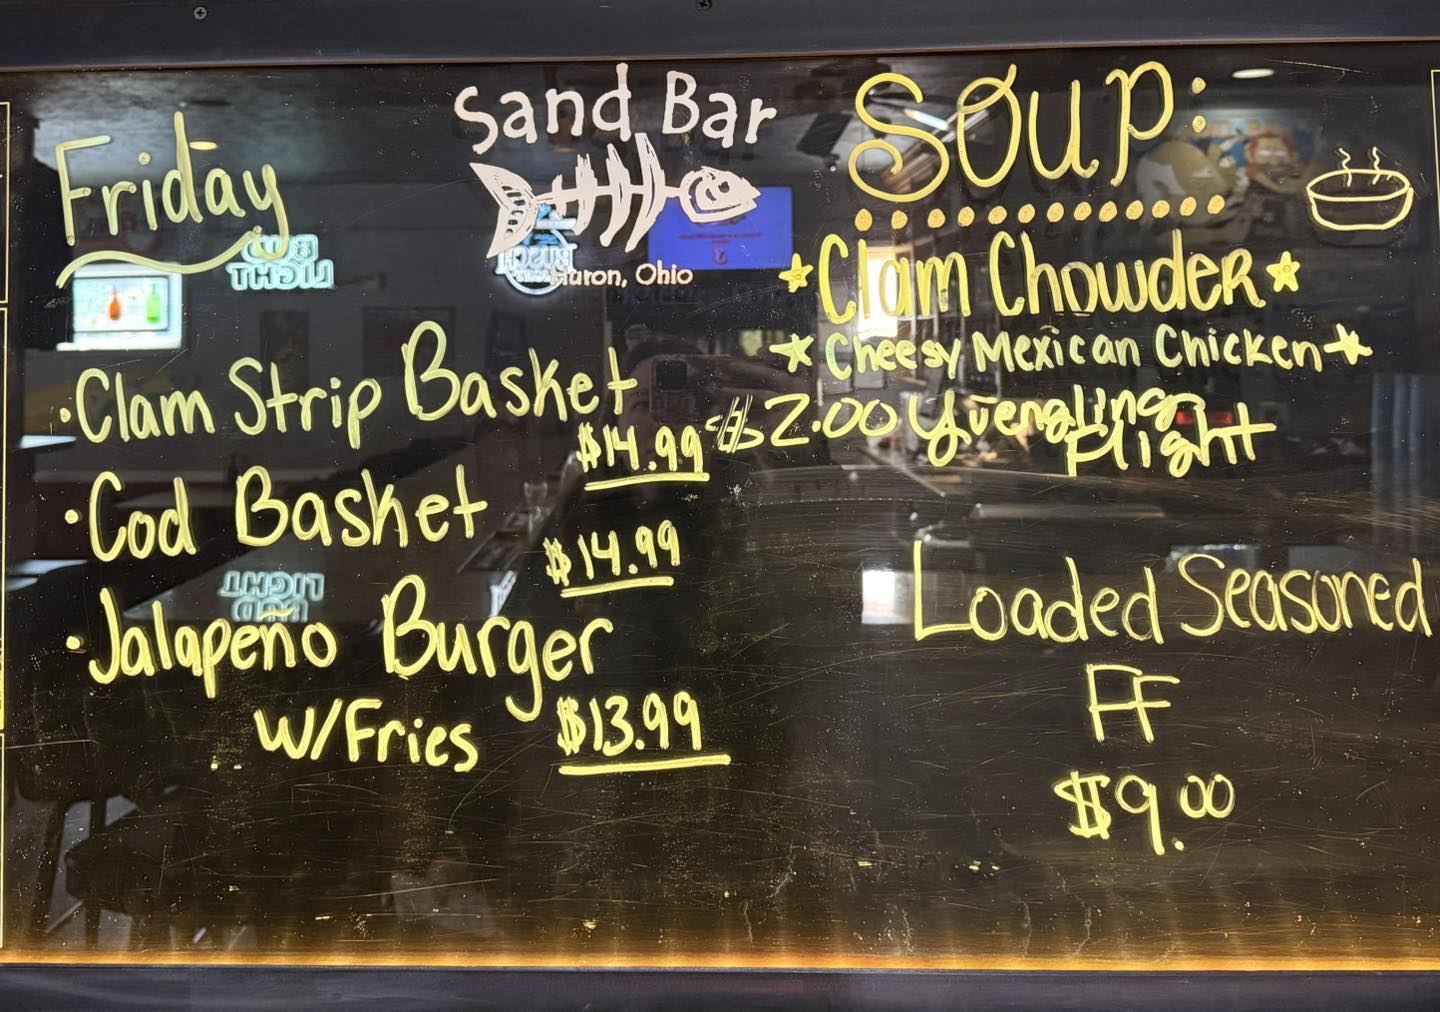 Sand Bar
Huron, Ohio
Friday
•Clam Strip Basket
$14.99
•Cod Basket
$14.99
•Jalapeño Burger
w/Fries $13.99
Soup:
Clam Chowder
Cheesy Mexican Chicken
$2.00 Yuengling
Flight
Loaded Seasoned
FF
$9.00
BUD
LIGHT
BUSCH
LIGHT
BUD